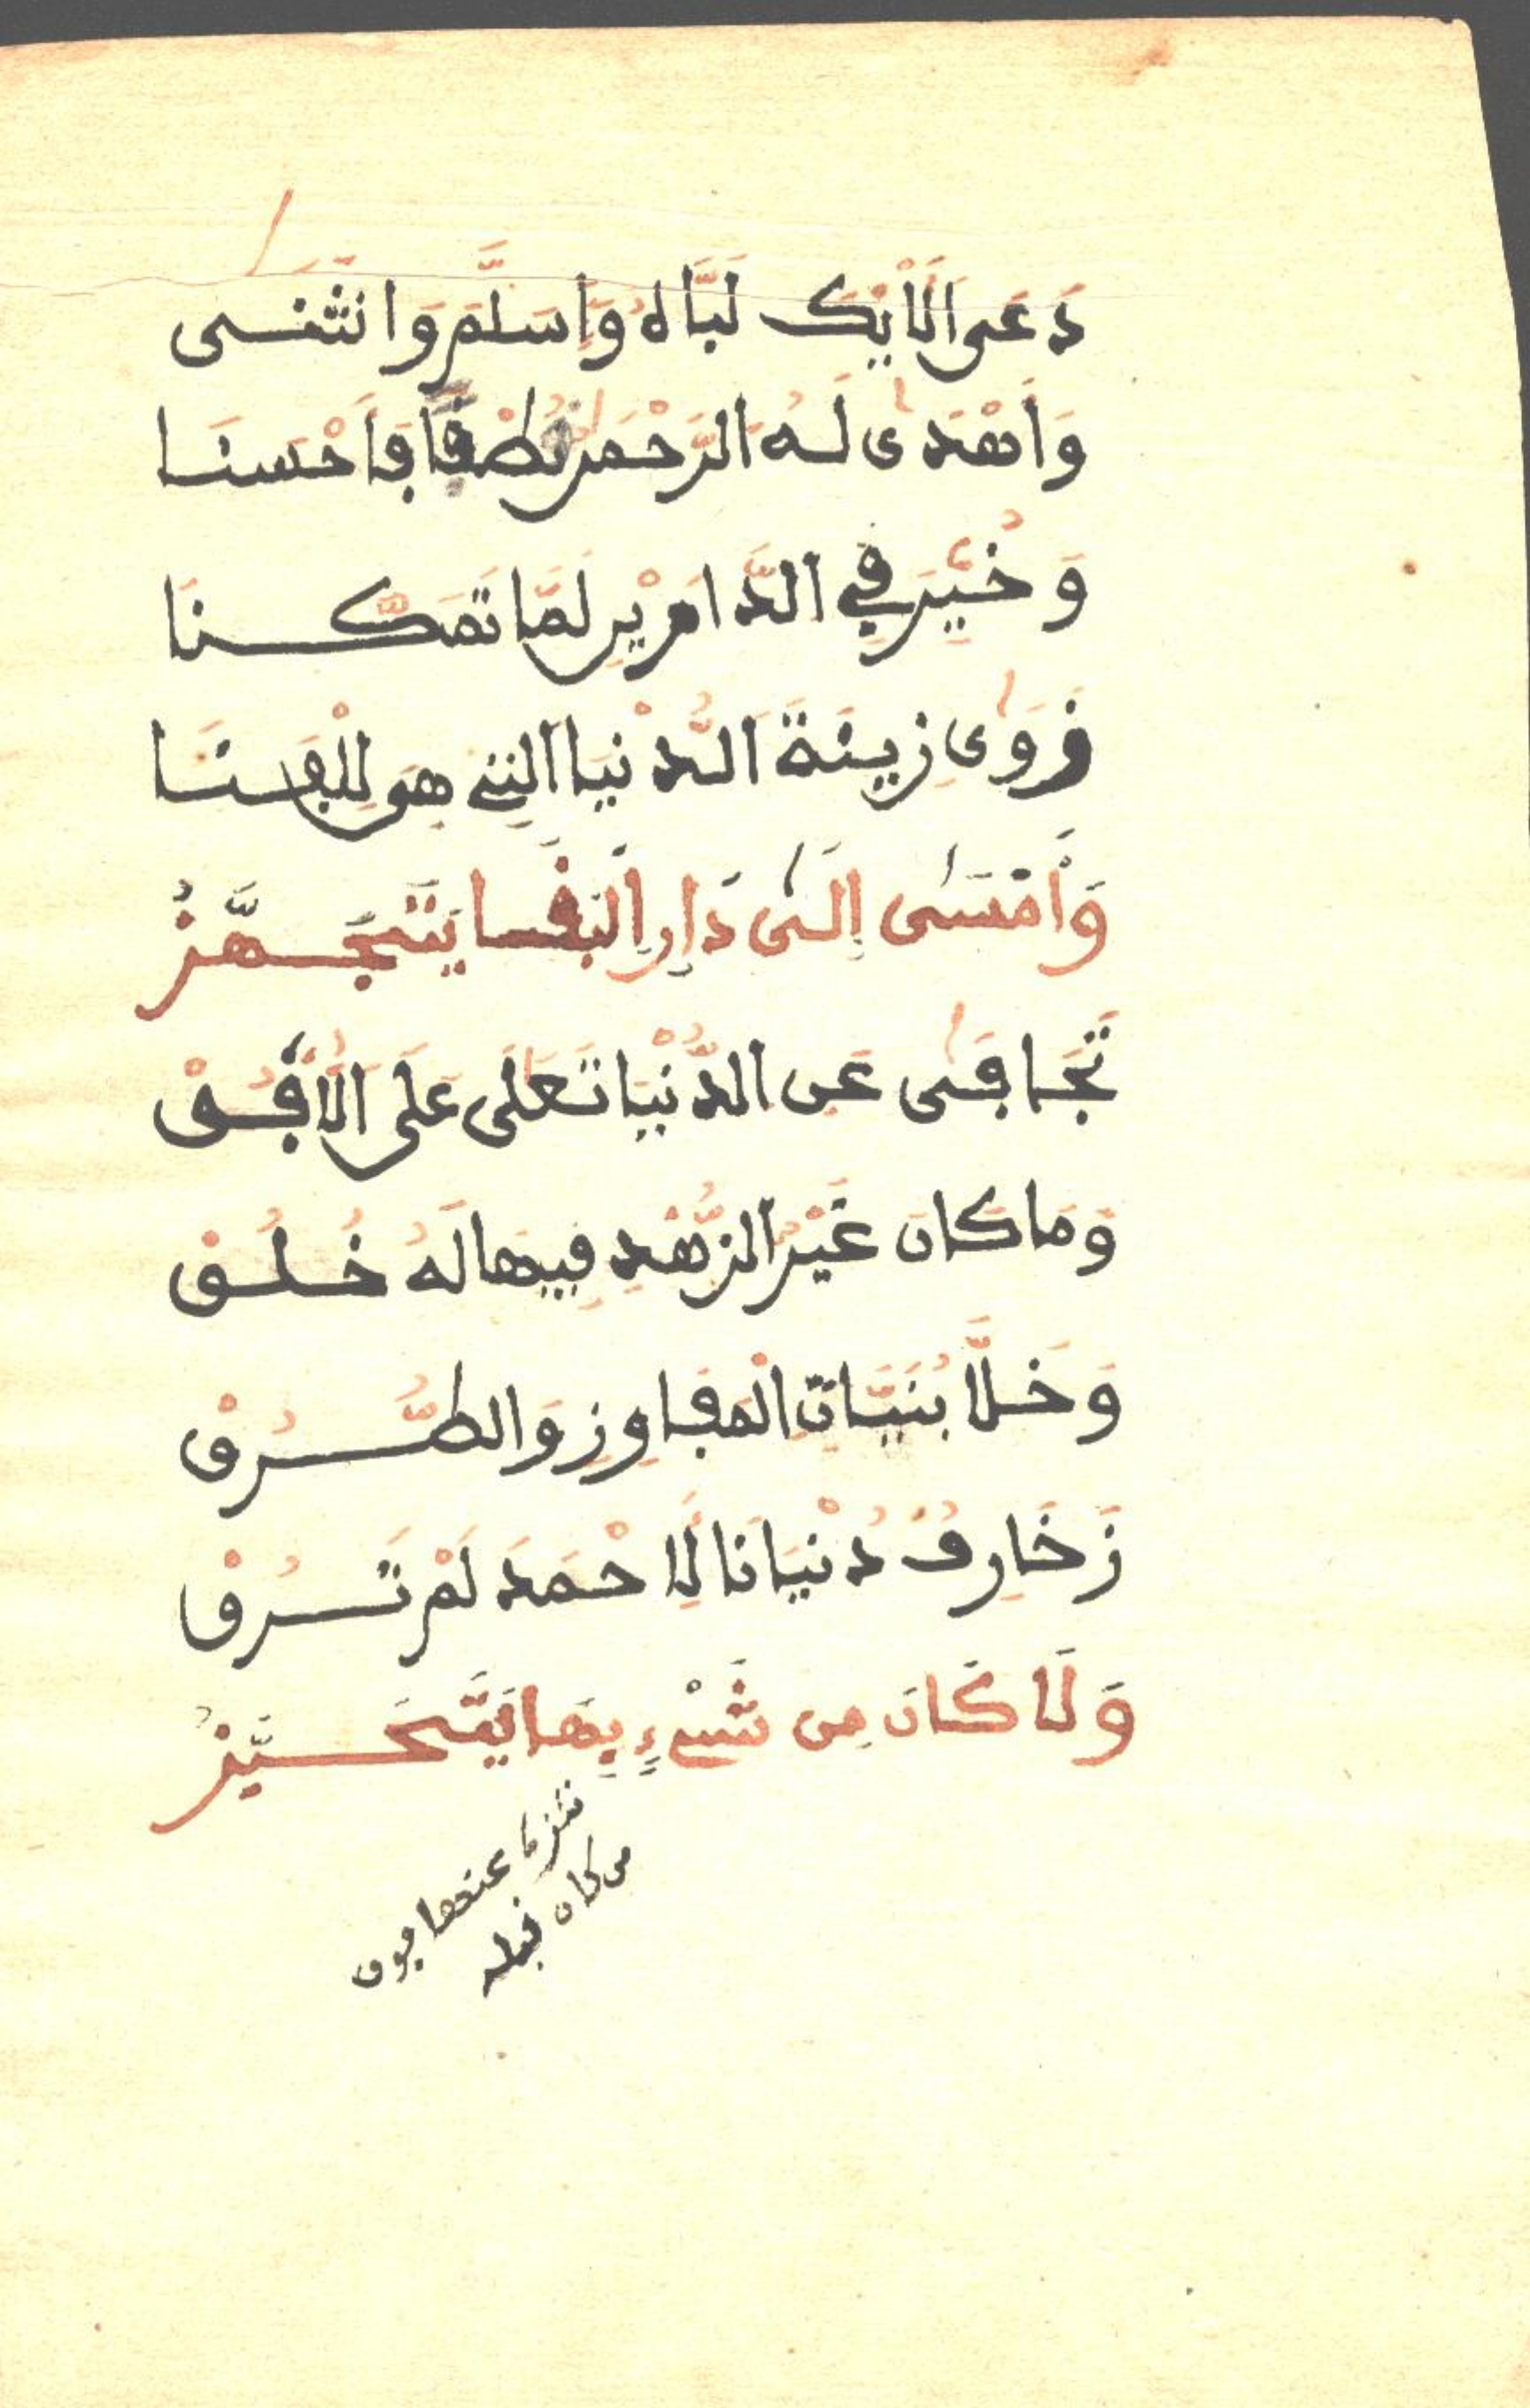 دَعَى الَايْكَ لَبَّاهُ وَاسَلَّمَ وَانْثَنَى
وَاهْدَى لَهُ الرَّحْمَنُ لُطْفًا فَاَحْسَنَا
وَخُيِّرَ فِي الدَّارَيْنِ لَمَّا تَمَكَّنَا
فَزَوَى زِينَةَ الدُّنْيَا الَّتِي هِيَ لِلْفَنَا
وَاَمْسَى إِلَى دَارِ الْبَقَا يَتَجَهَّزُ
تَجَافَى عَنِ الدُّنْيَا تَعَلَى عَلَى الْاُفُقْ
وَمَا كَانَ غَيْرُ الزُّهْدِ فِيهَا لَهُ خُلُقْ
وَخَلَّا بُنَيَّاتِ الْمَفَاوِزِ وَالطُّرُقْ
زَخَارِفُ دُنْيَانَا لِاَحْمَدَ لَمْ تَرُقْ
وَلَا كَانَ مِن شَيْءٍ بِهَا يَتَحَيَّزُ
تنزها عنها فوق
من كان قبله